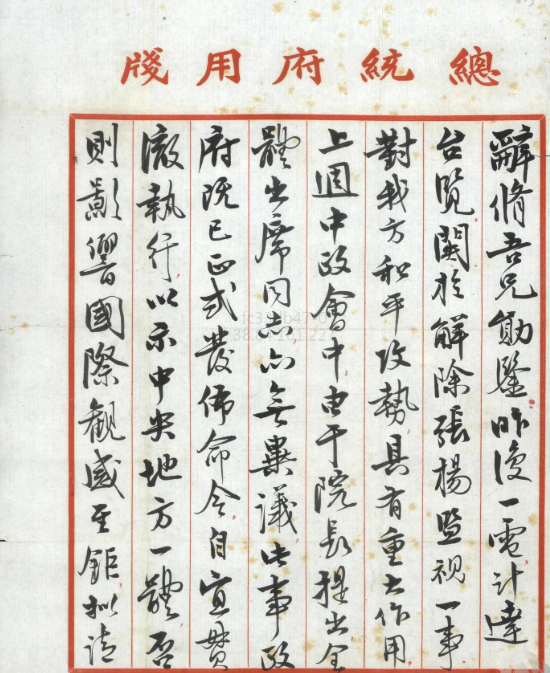 總統府用牋
辭脩吾兄勛鑒昨復一電計達
台覽關於解除張楊監視一事
對我方和平攻勢具有重大作用
上週中政會中由于院長提出全
體出席同志亦無異議此事政
府既已正式發佈命令自宜貫
澈執行以示中央地方一體否
則影響國際觀感至鉅拟请